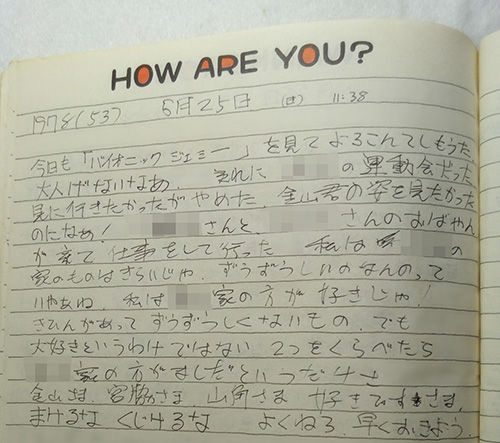 HOW ARE YOU?
1978(53) 6月25日 (日) 11:38
今日も「バイオニックジェミー」を見てよろこんでしもうた
大人げないなあ. それに の運動会だった
見に行きたかったがやめた. 金山君の姿を見たかった
のになぁ! さんと. さんのおばやん
が来て仕事をして行った 私は の
家のものはきらいじゃ. ずうずうしいのなんのって
いやぁね. 私は 家の方が好きじゃ!
きひんがあってずうずうしくないもの. でも
大好きというわけではない 2つをくらべたら
家の方がましだというだけさ
金山さま. さま 山角さま 好きです さま.
まけるな くじけるな よくねろ 早くおきよう.